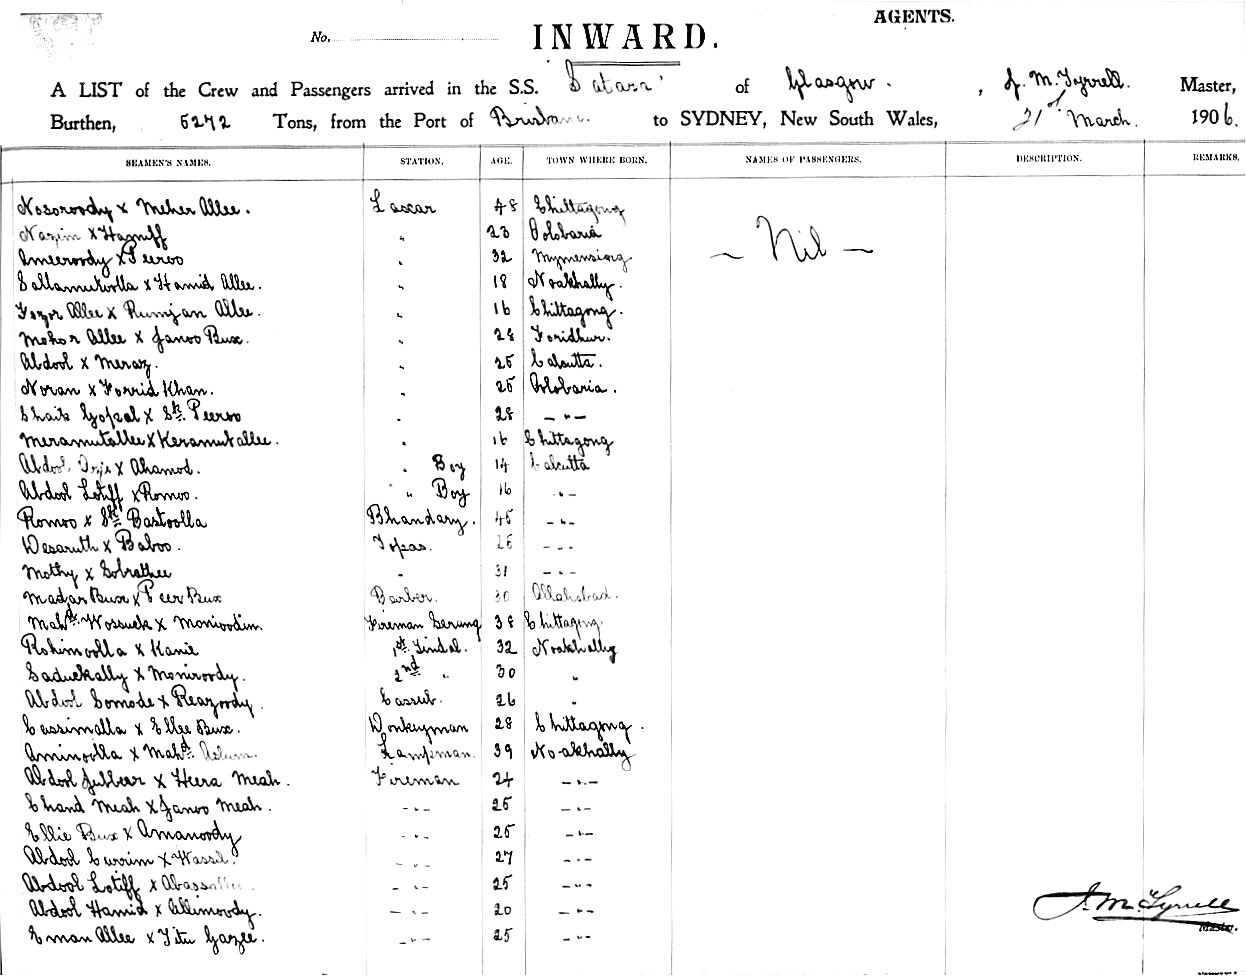 AGENTS.
No.
INWARD.
A LIST of the Crew and Passengers arrived in the S.S. 'Satara' of Glasgow. , J. M. Tyrrell. Master,
Burthen, 5272 Tons, from the Port of Brisbane. to SYDNEY, New South Wales, 21st March. 1906.
SEAMEN'S NAMES. STATION. AGE. TOWN WHERE BORN. NAMES OF PASSENGERS. DESCRIPTION. REMARKS.
Nosoroody x Meher Allee. Lascar 48 Chittagong
Nazim x Haniff " 23 Dolobaria
Ameeroody x Peeroo " 32 Mymensing
~ Nil ~
Sallamutoolla x Hamid Allee. " 18 Noakhally.
Fozor Allee x Rumjan Allee. " 16 Chittagong.
Mohor Allee x Janoo Bux. " 28 Foridpur.
Abdool x Meraz. " 25 Calcutta.
Noran x Forrid Khan. " 25 Dolobaria.
Shaik Gopal x Sk. Peeroo " 28 - " -
Meramutallee x Keramutallee. " 16 Chittagong
Abdool x Ahamod. " Boy 14 Calcutta
Abdool Lotiff x Romoo. " Boy 16 - " -
Romoo x Sk. Bastoolla Bhandary. 45 - " -
Wesaruth x Baboo. Topas. 26 - " -
Mothy x Sobrathee " 31 - " -
Madar Bux x Peer Bux Barber. 30 Allahabad.
Mahd. Wossuck x Monioodin. Fireman Serung 38 Chittagong.
Rohimoolla x Kanie 1st Tindal. 32 Noakhally
Saduckally x Moniroody. 2nd " 30 "
Abdool Somode x Reazoody. Cassub. 26 "
Cassimalla x Ellee Bux. Donkeyman 28 Chittagong.
Aminoolla x Mahd. Aslum. Lampman. 39 Noakhally
Abdool Jubbar x Heera Meah. Fireman 24 - " -
Chand Meah x Janoo Meah. - " - 25 - " -
Ellie Bux x Amanoody - " - 25 - " -
Abdool Currim x Wassil. - " - 27 - " -
Abdool Lotiff x Abassallee. - " - 25 - " -
Abdool Hamid x Allimoody. - " - 20 - " -
J. M. Tyrrell
Eman Allee x Titu Gazee. - " - 25 - " -
Master.